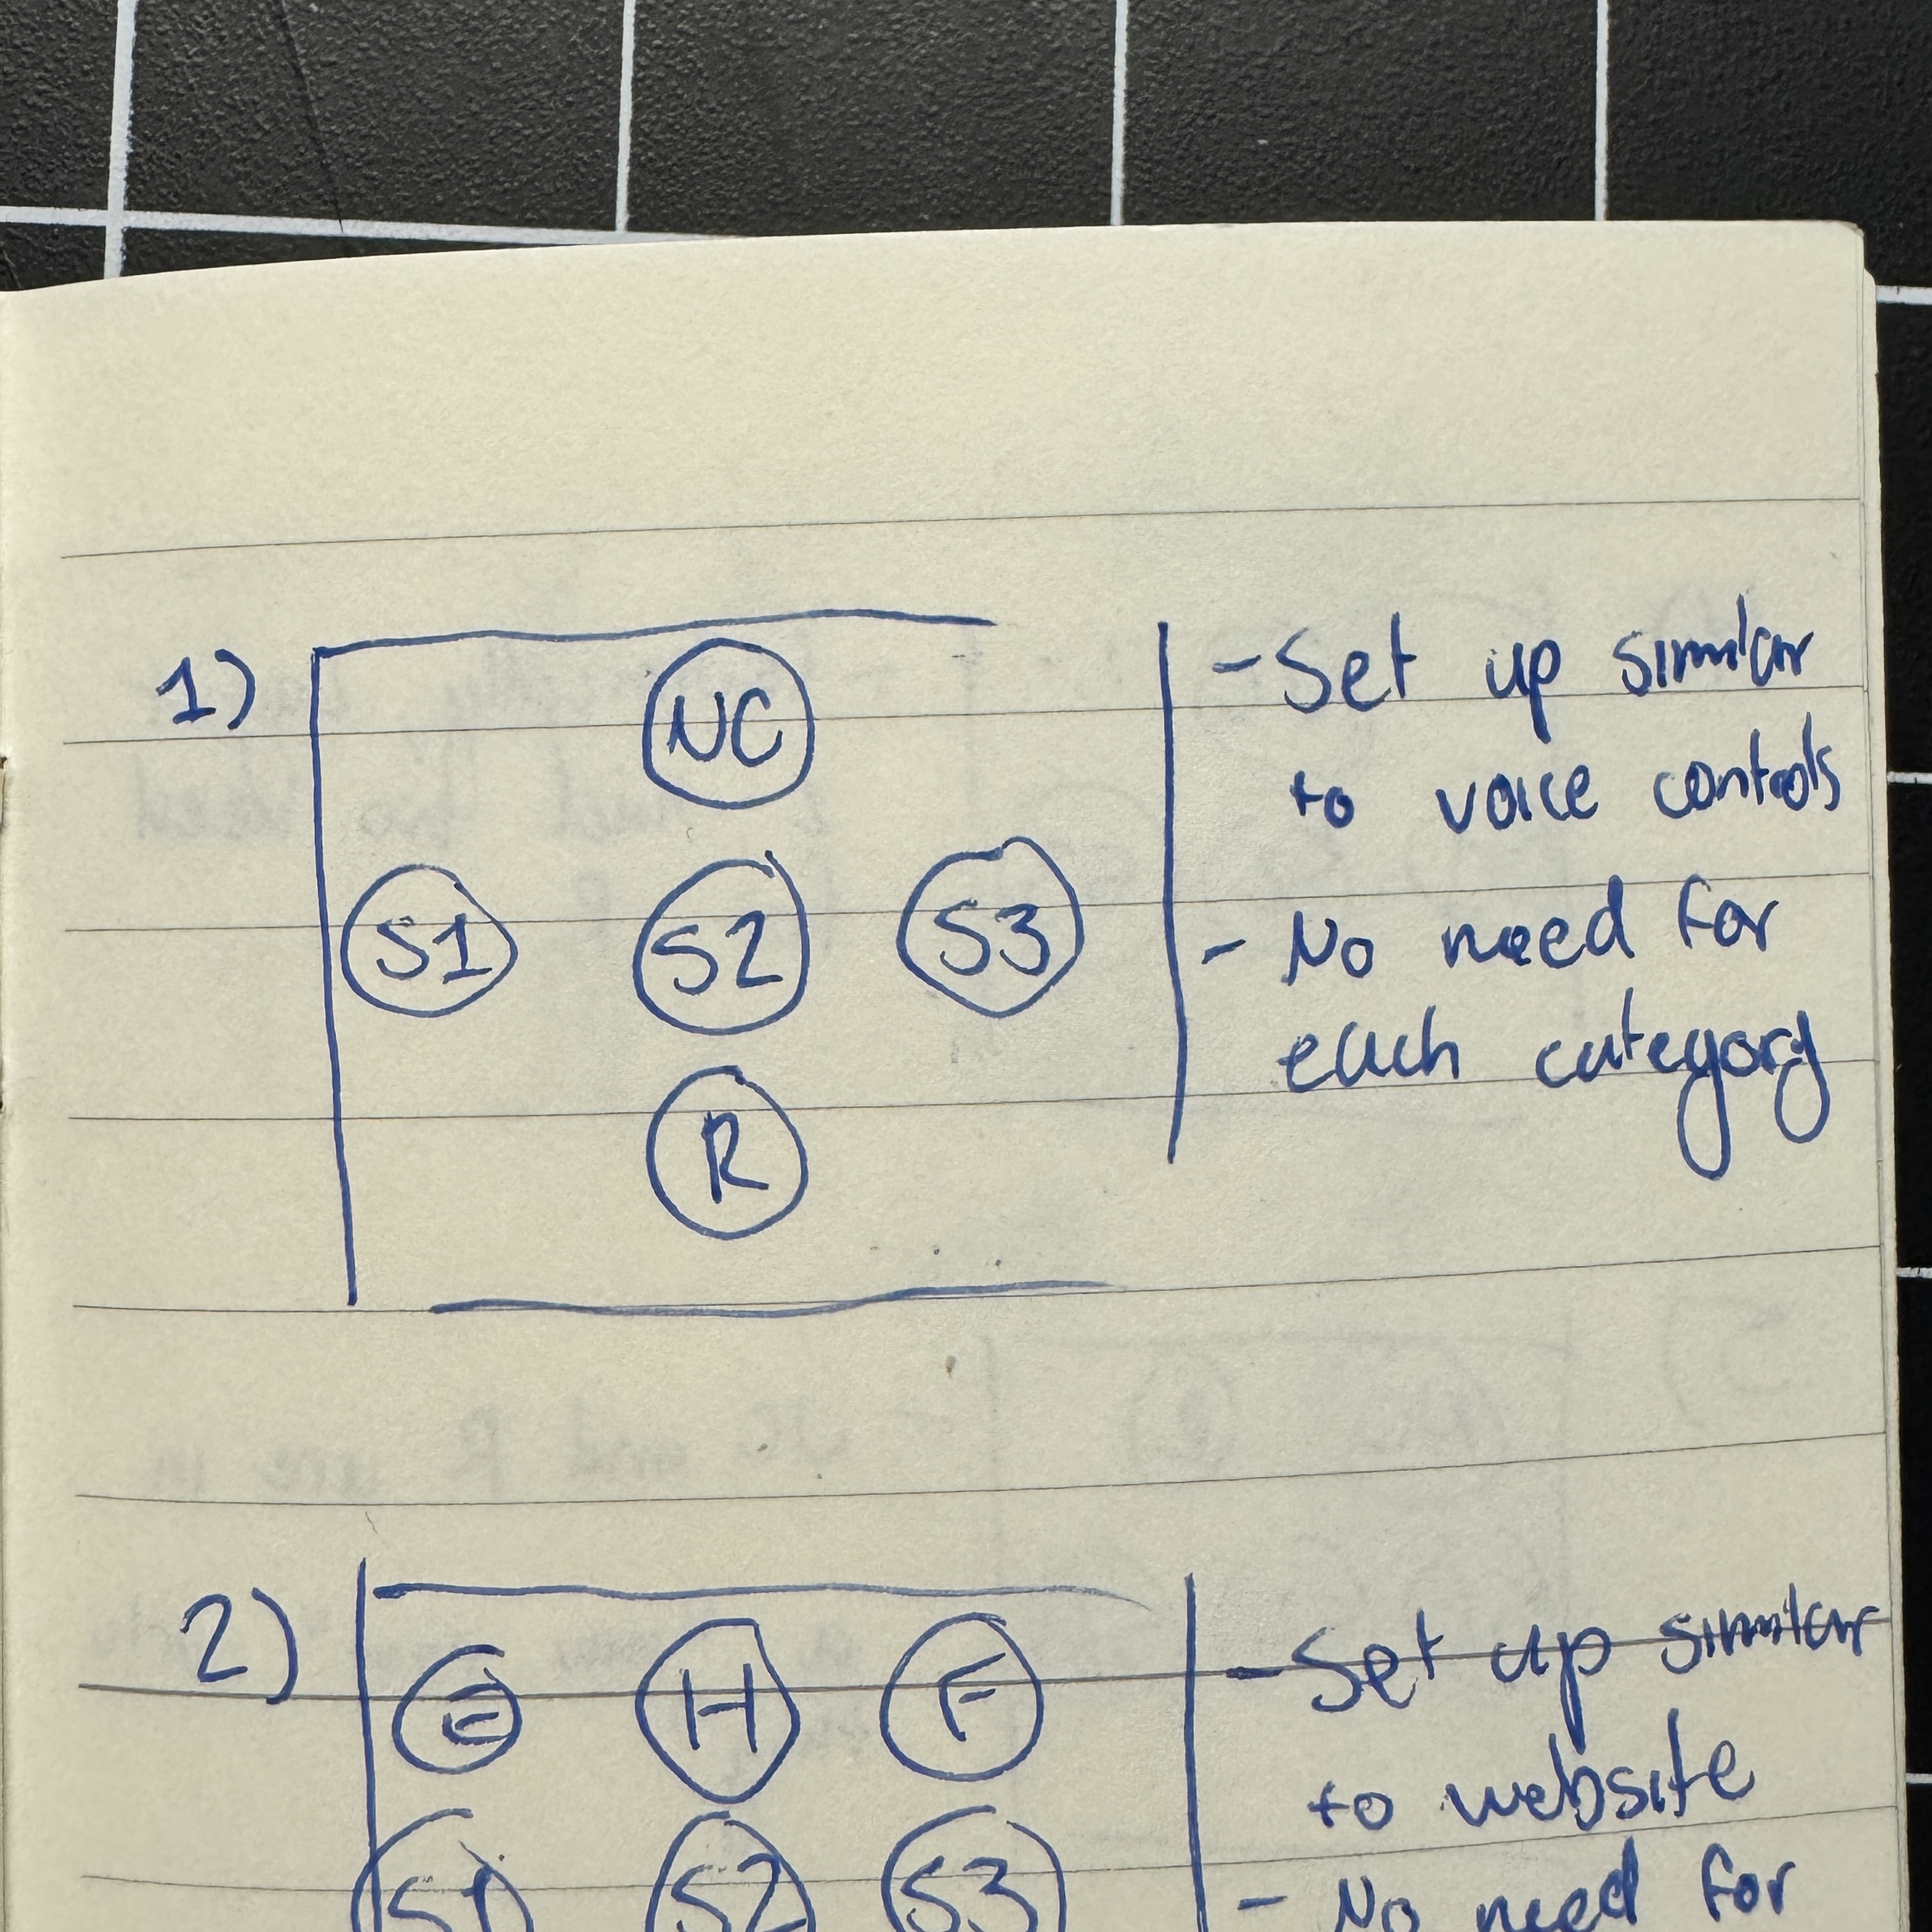 1)
NC
S1 S2 S3
R
- Set up similar
to voice controls
- No need for
each category
2)
E H F
S1 S2 S3
- Set up similar
to website
- No need for